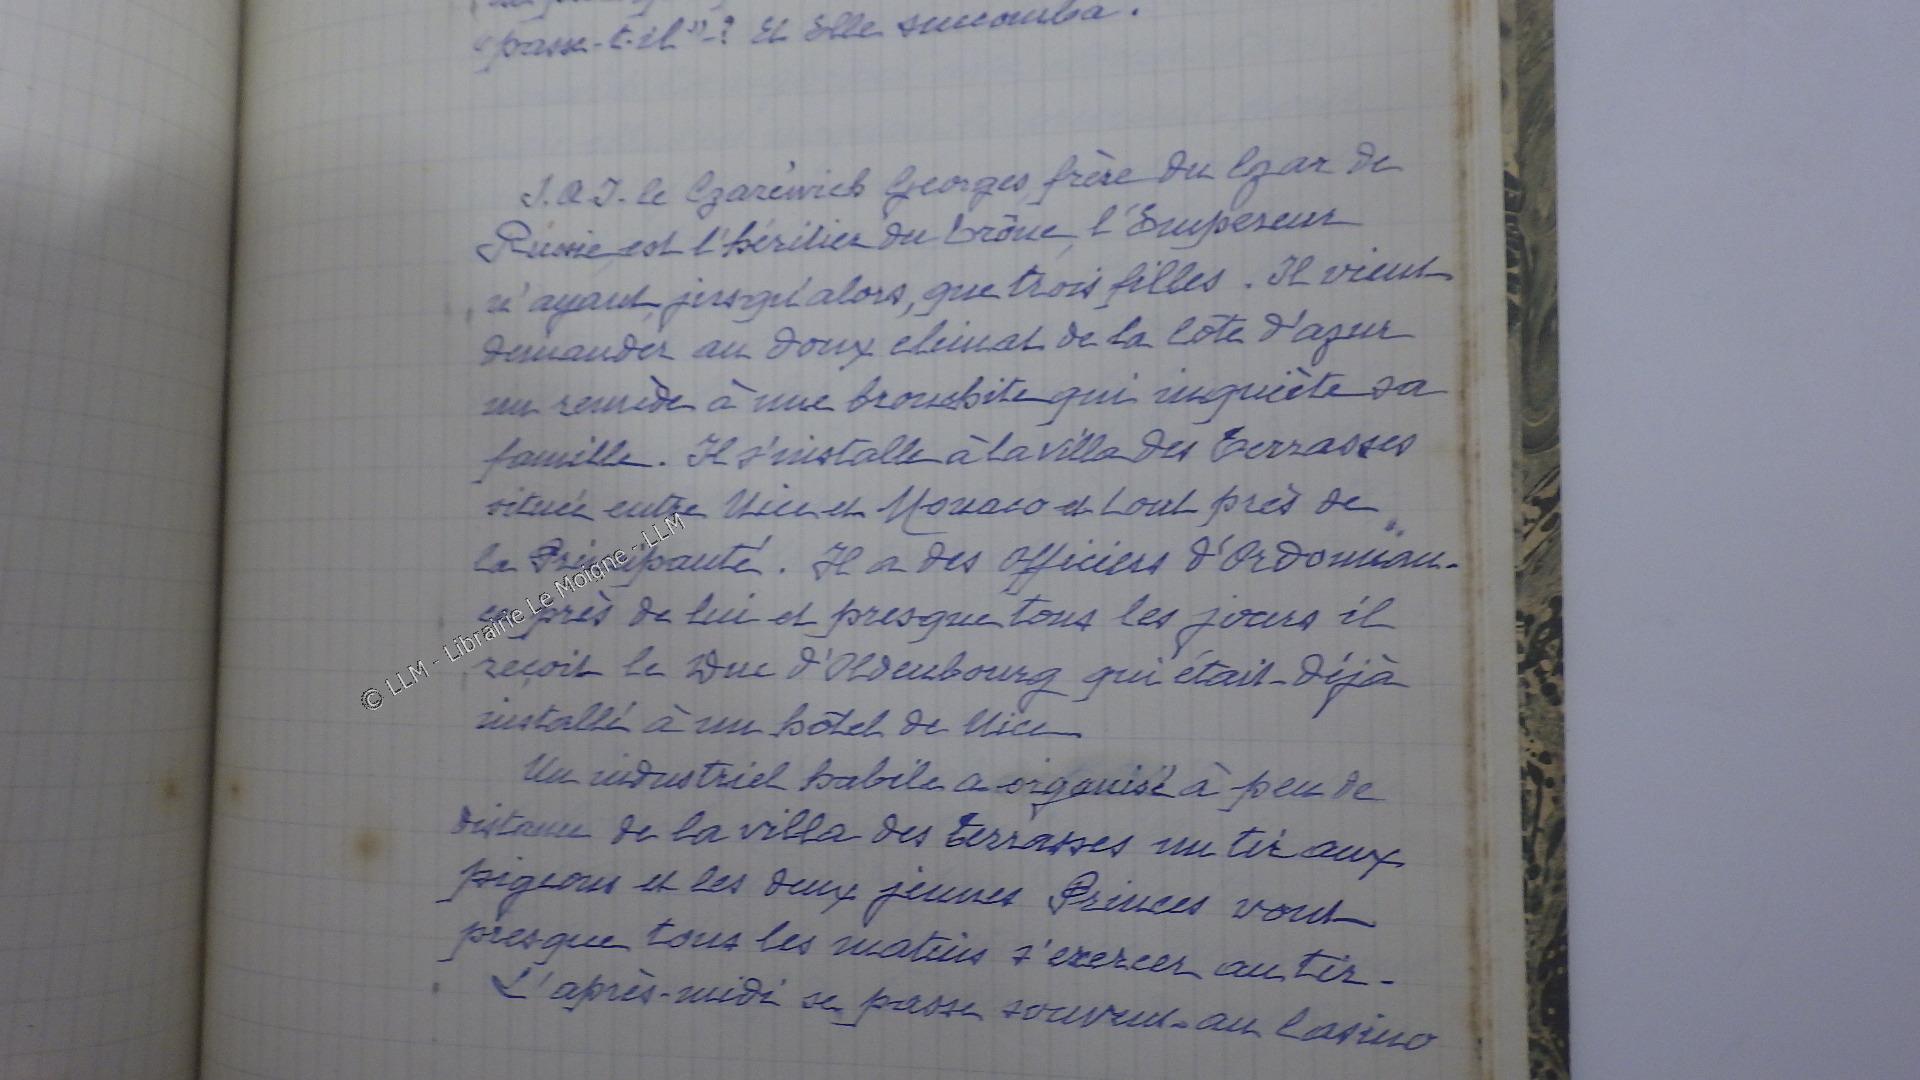 "passe-t-il"-? Et Elle succomba.
S.A.I. le Czaréwich Georges, frère du Czar de
Russie est l'héritier du trône, l'Empereur
n'ayant, jusqu'alors, que trois filles. Il vient
demander au doux climat de la Côte d'azur
un remède à une bronchite qui inquiète sa
famille. Il s'installe à la villa des Terrasses
située entre Nice et Monaco et tout près de
la Principauté. Il a des officiers d'Ordonnan-
ce près de lui et presque tous les jours il
reçoit le Duc d'Oldenbourg qui était déjà
installé à un hôtel de Nice
Un industriel habile a organisé à peu de
distance de la villa des Terrasses un tir aux
pigeons et les deux jeunes Princes vont
presque tous les matins s'exercer au tir.
L'après-midi se passe souvent au Casino
© LLM - Librairie Le Moigne - LLM